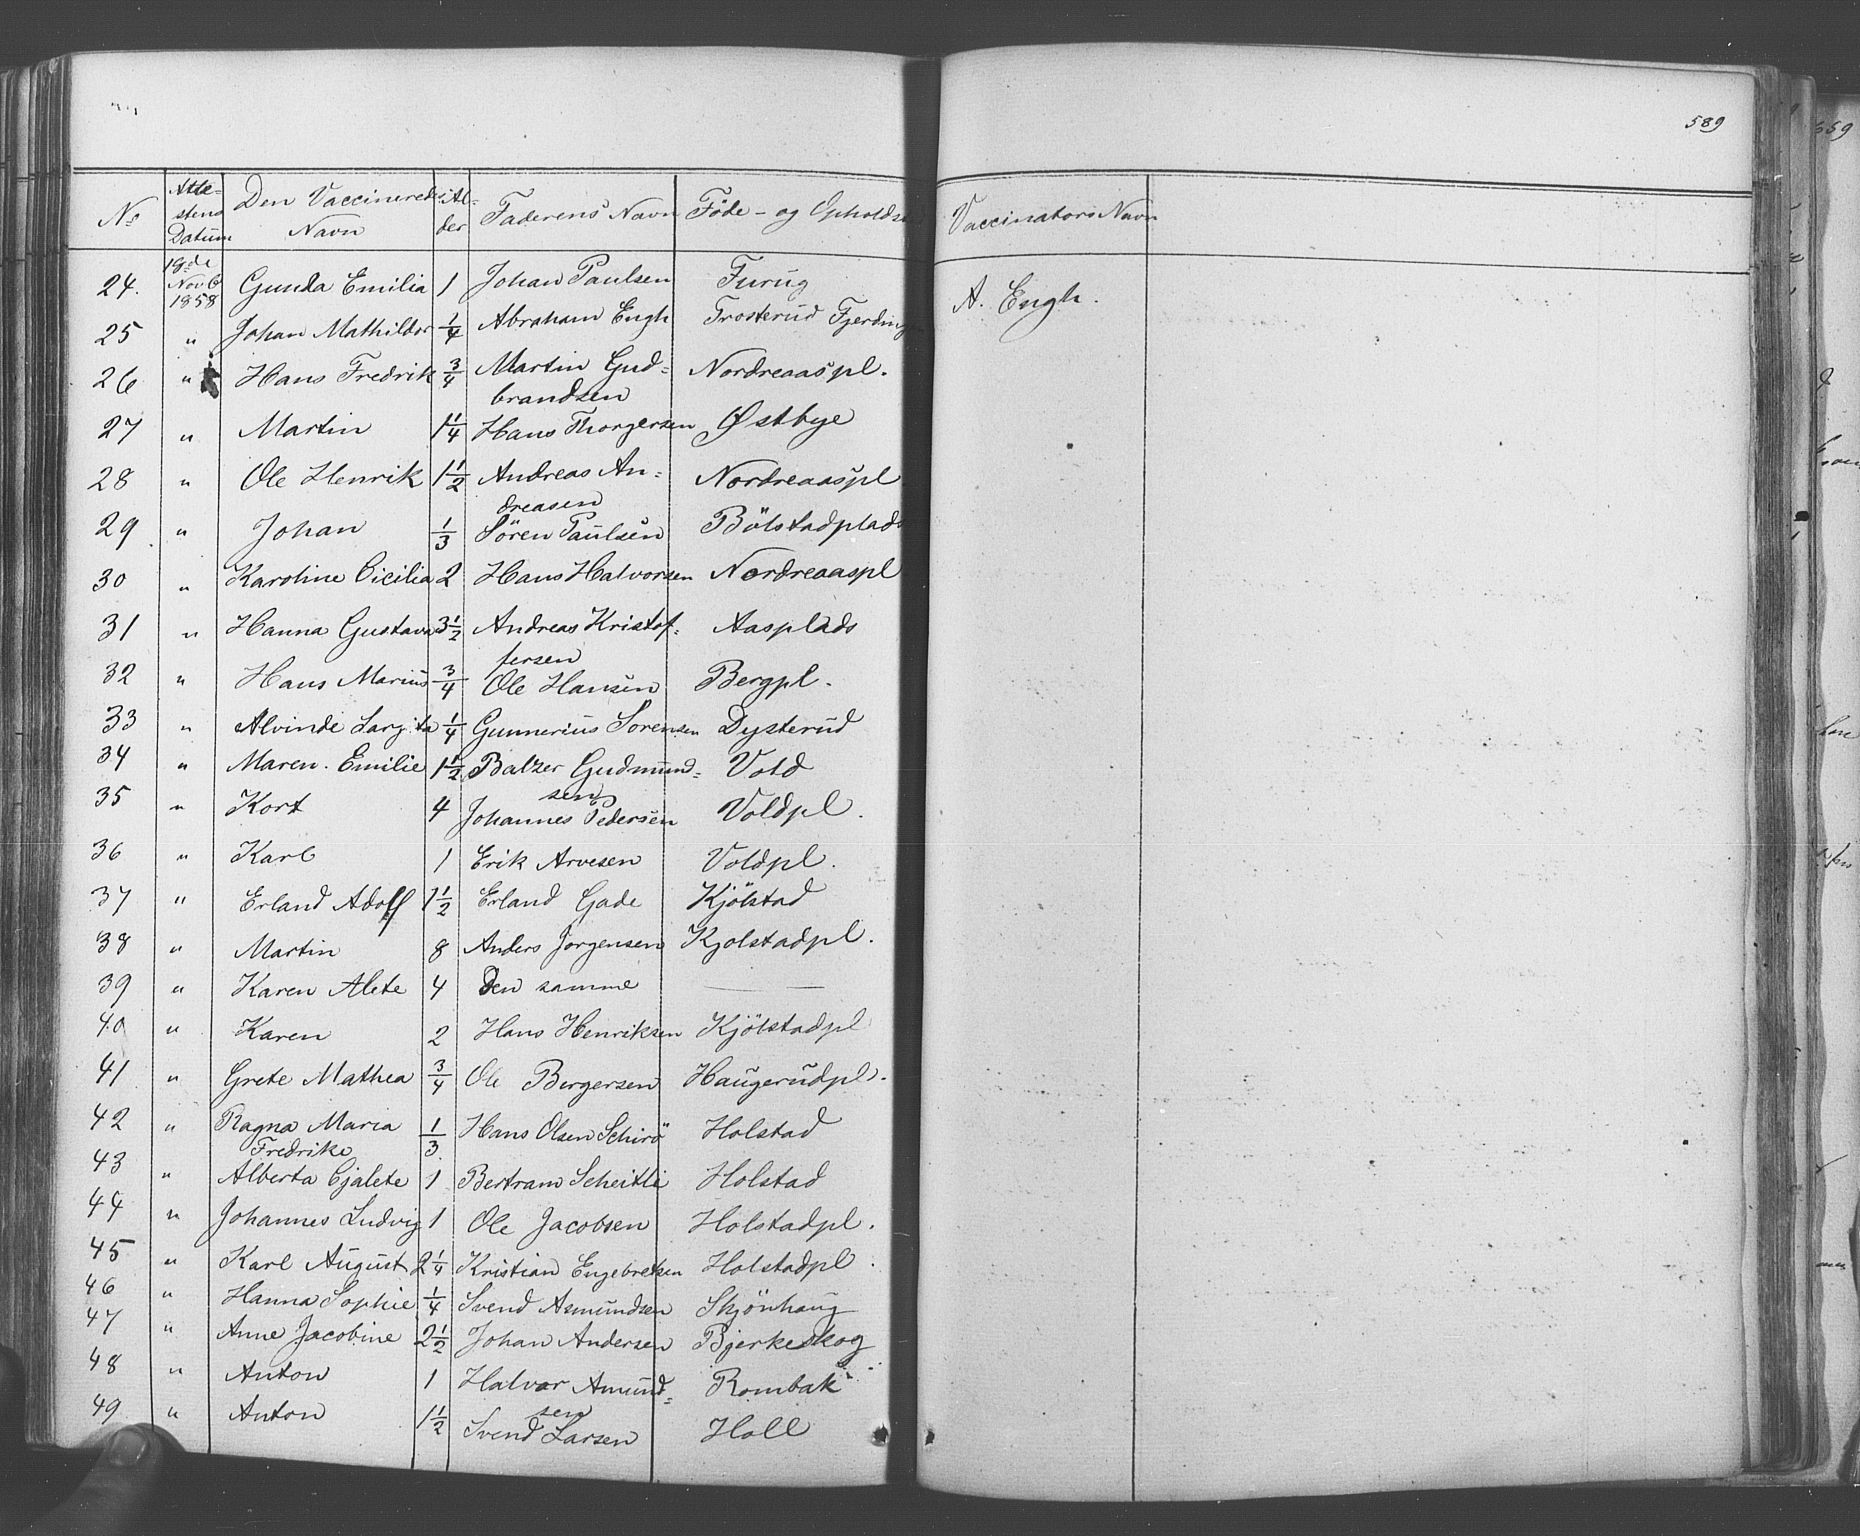 589
No Atte- Den Vaccinerede Al- Faderens Navn Föde- og Opholds Vaccinators Navn
stens Navn der
Datum
24. 18de Novb 1858 Gunda Emilia 1 Johan Paulsen Furug A. Engh.
25 " Johan Mathildor 1/4 Abraham Engh Trosterud Fjerdingen
26 " Hans Fredrik 3/4 Martin Gud= Nordreaaspl.
brandsen
27 " Martin 1 1/4 Hans Thorgersen Østbye
28 " Ole Henrik 1 1/2 Andreas An= Nordreaaspl
dreasen
29 " Johan 1/3 Sören Paulsen Bölstadplads
30 " Karoline Cicilia 2 Hans Halvorsen Nordreaaspl
31 " Hanna Gustava 3 1/2 Andreas Kristof= Aasplads
fersen
32 " Hans Marius 3/4 Ole Hansen Bergpl.
33 " Alvinde Largita 1/4 Gunnerius Sorensen Dysterud
34 " Maren. Emilie 1 1/2 Balzer Gudmund= Vold
sen
35 " Kort 4 Johannes Pedersen Voldpl.
36 " Karl 1 Erik Arvesen Voldpl.
37 " Erland Adolf 1 1/2 Erland Gade Kjölstad
38 " Martin 8 Anders Jorgensen Kjolstadpl.
39 " Karen Alete 4 Den samme —
40 " Karen 2 Hans Henriksen Kjölstadpl
41 " Grete Mathea 3/4 Ole Birgersen Haugerudpl.
42 " Ragna Maria 1/3 Hans Olsen Schirö Holstad
Fredrike
43 " Alberta Cjalete 1 Bertram Scheitli Holstad
44 " Johannes Ludvig 1 Ole Jacobsen Holstadpl.
45 " Karl August 2 1/4 Kristian Engebretsen Holstadpl.
46 " Hanna Sophie 1/4 Svend Asmundsen Skjönhaug
47 " Anne Jacobine 2 1/2 Johan Andersen Bjerkeskog
48 " Anton 1 Halvor Amund= Rombak
sen
49 " Anton 1 1/2 Svend Larsen Holl